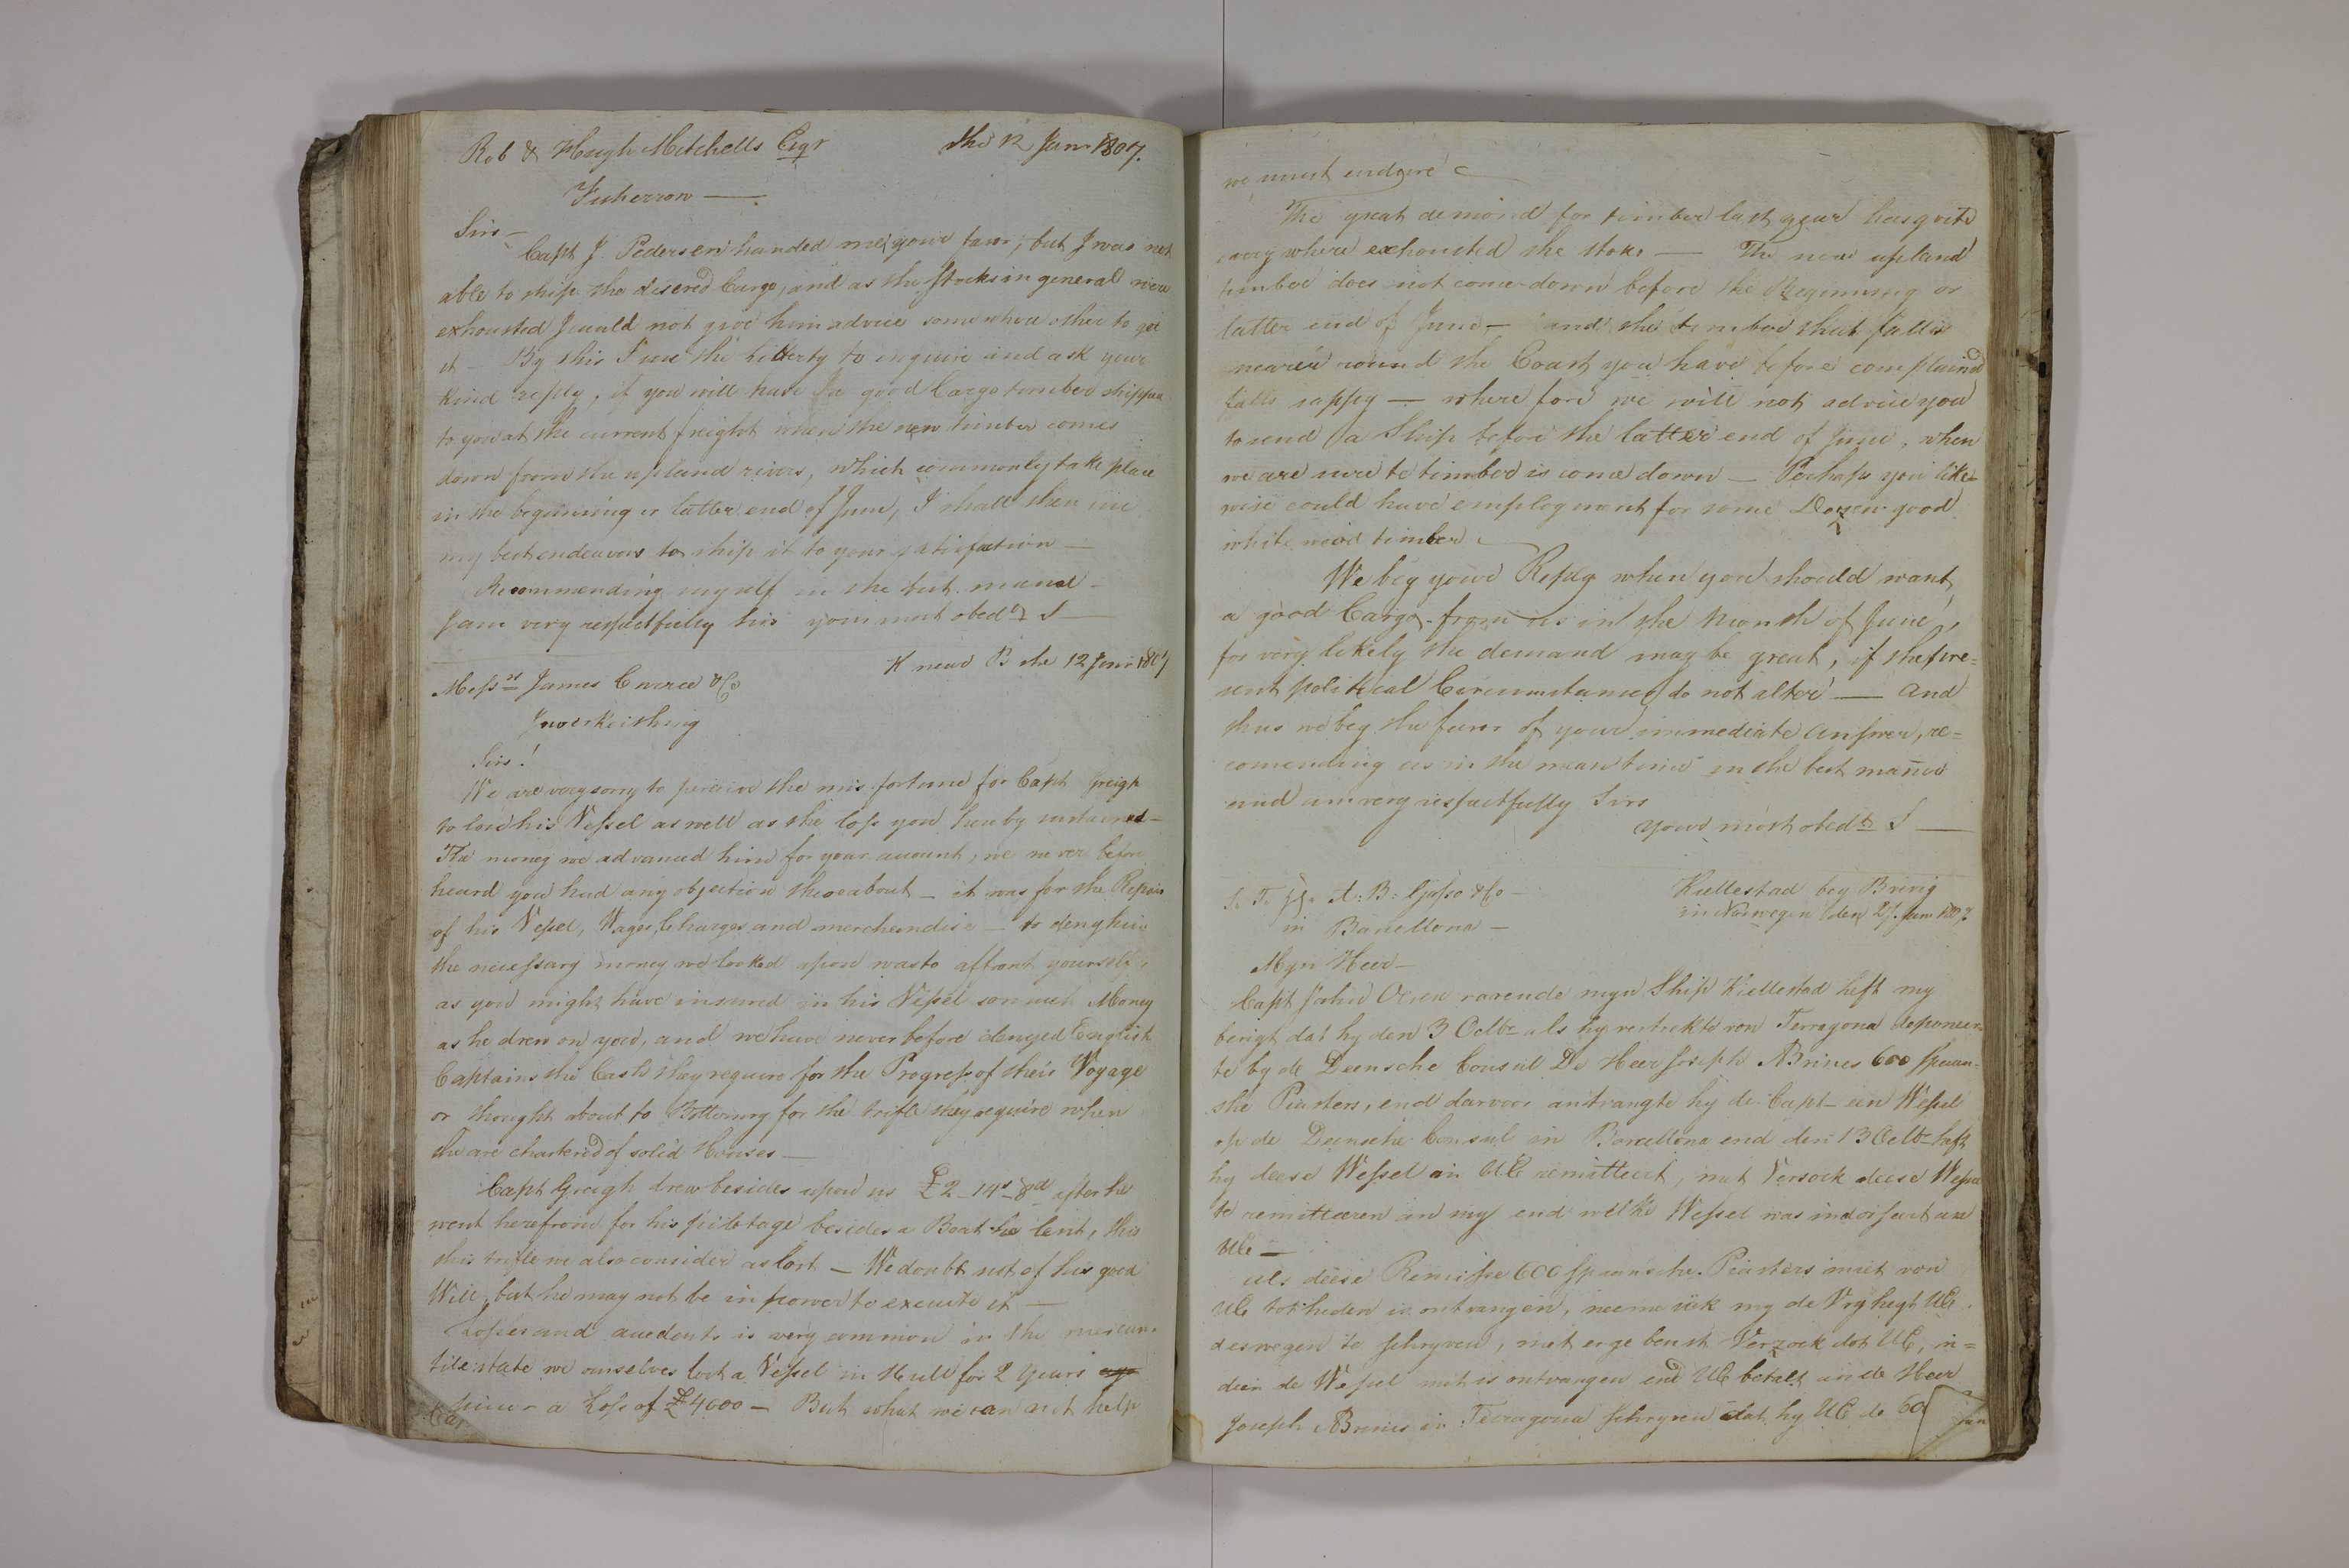 Rob & Hugh Mitchells Esqr the 12 Janr 1807.
Fisherrow —
Sirs —
Capt J. Pedersen handed me your favr, but I was not
able to ship the desered Cargo, and as the Stocks in general were
exhousted I could not give him advice somewhere other to get
it — By this I use the liberty to enquire and ask your
kind reply, if you will have a good Cargo timber shipped
to you at the current freight when the new timber comes
down from the upland rivers, which commonly take place
in the beginning or latter end of June, I shall then use
my best endeavors to ship it to your satisfaction —
Recommending myself in the best maner
I am very respectfully Sirs your most obedt S —
the 12 Janr 1807
Messrs James & Co
Inverkeithing
Sirs!
We are very sorry to perceive the misfortune for Capt Greigh
to lose his Vessel as well as the loss you hereby sustained —
The money we advanced him for your account, we never before
heard you had any objection thereabout — it was for the Repair
of his Vessel, Wages, Charges and merchandise — to deny him
the necessary money we looked upon was to affront yourself,
as you might have insured in his Vessel so much Money
as he drew on you, and we have never before denyed English
Captains the Cash they require for the Progress of their Voyage
or thought about to Bottomry for the trifle they require when
the are chartered of solid Houses —
Capt Greigh drew besides upon us £2 – 14s – 8d after he
went herefrom for his pilotage besides a Boat he lent, this
this trifle we also consider as lost — We doubt not of his good
Will, but he may not be in power to execute it —
Losses and accedents is very common in the mercan-
tile state we ourselves lost a Vessel in Hull for 2 years
a Loss of £4000 — But what we can not help
we must endure
The great demand for timber last year has quite
every where exhousted the stoks — The new upland
timber does not come down before the Beginning or
latter end of June — and the timber that falls
nearer round the Coast you have before complained
falls sappy — wherefore we will not advice you
to send a Ship before the latter end of June, when
we are sure te timber is come down — Perhaps you like-
wise could have employment for some Dozen good
white wood timber
We beg your Reply when you should want
a good Cargo from us in the month of June,
for very likely the demand may be great, if the pre=
sent political Circumstances do not alter — and
thus we beg the favor of your immediate answer, re=
comending us in the meantime in the best maner
and am very respectfully Sirs
your most obedt S —
A: B: & Co — Kiellestad bey Brevig
in Barcellona — in Norwegen den 27. Janr 1807
Myn Heer —
Capt John Olsen varende myn Ship Kiellestad heft my
berigt dat hy den 3 Octbr als hy vertrekte von Terragona deponeer-
te by de Deensche Consul De Heer Joseph Brines 600 Spaan-
she Piasters, end darvoor antvangte hy de Capt een Wessel
op de Deensche Consul in Barcellona end den 13 Octbr heft
hy deese Wessel an UE remitteert, mit Versoek deese Wessel
te remitteeren an my end welke Wessel was indosseert an
UE —
als deese Remisse 600 Spaansche Piasters niet von
UE tot heden is ontvangen, neeme iek my de Vryheyt UE
deswegen te schryven, met ergebenst Verzoek dat UE, in=
dien de Wessel nit is ontvangen end UE betalt an de Heer
Joseph Brines in Terragona schryven dat hy UE de 600